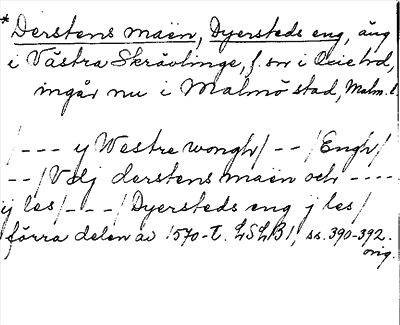 * Derstens maen, Dyersteds eng, äng
i Västra Skrävlinge, f. sn i Oxie hd,
ingår nu i Malmö stad, Malm. l.
/--- y Westre wongh/ -- /Engh/
--/Vdj derstens maen och -----
ij les/---/Dyersteds eng j les/
förra delen av 1570-t. LSLB 1, ss. 390-392.
orig.